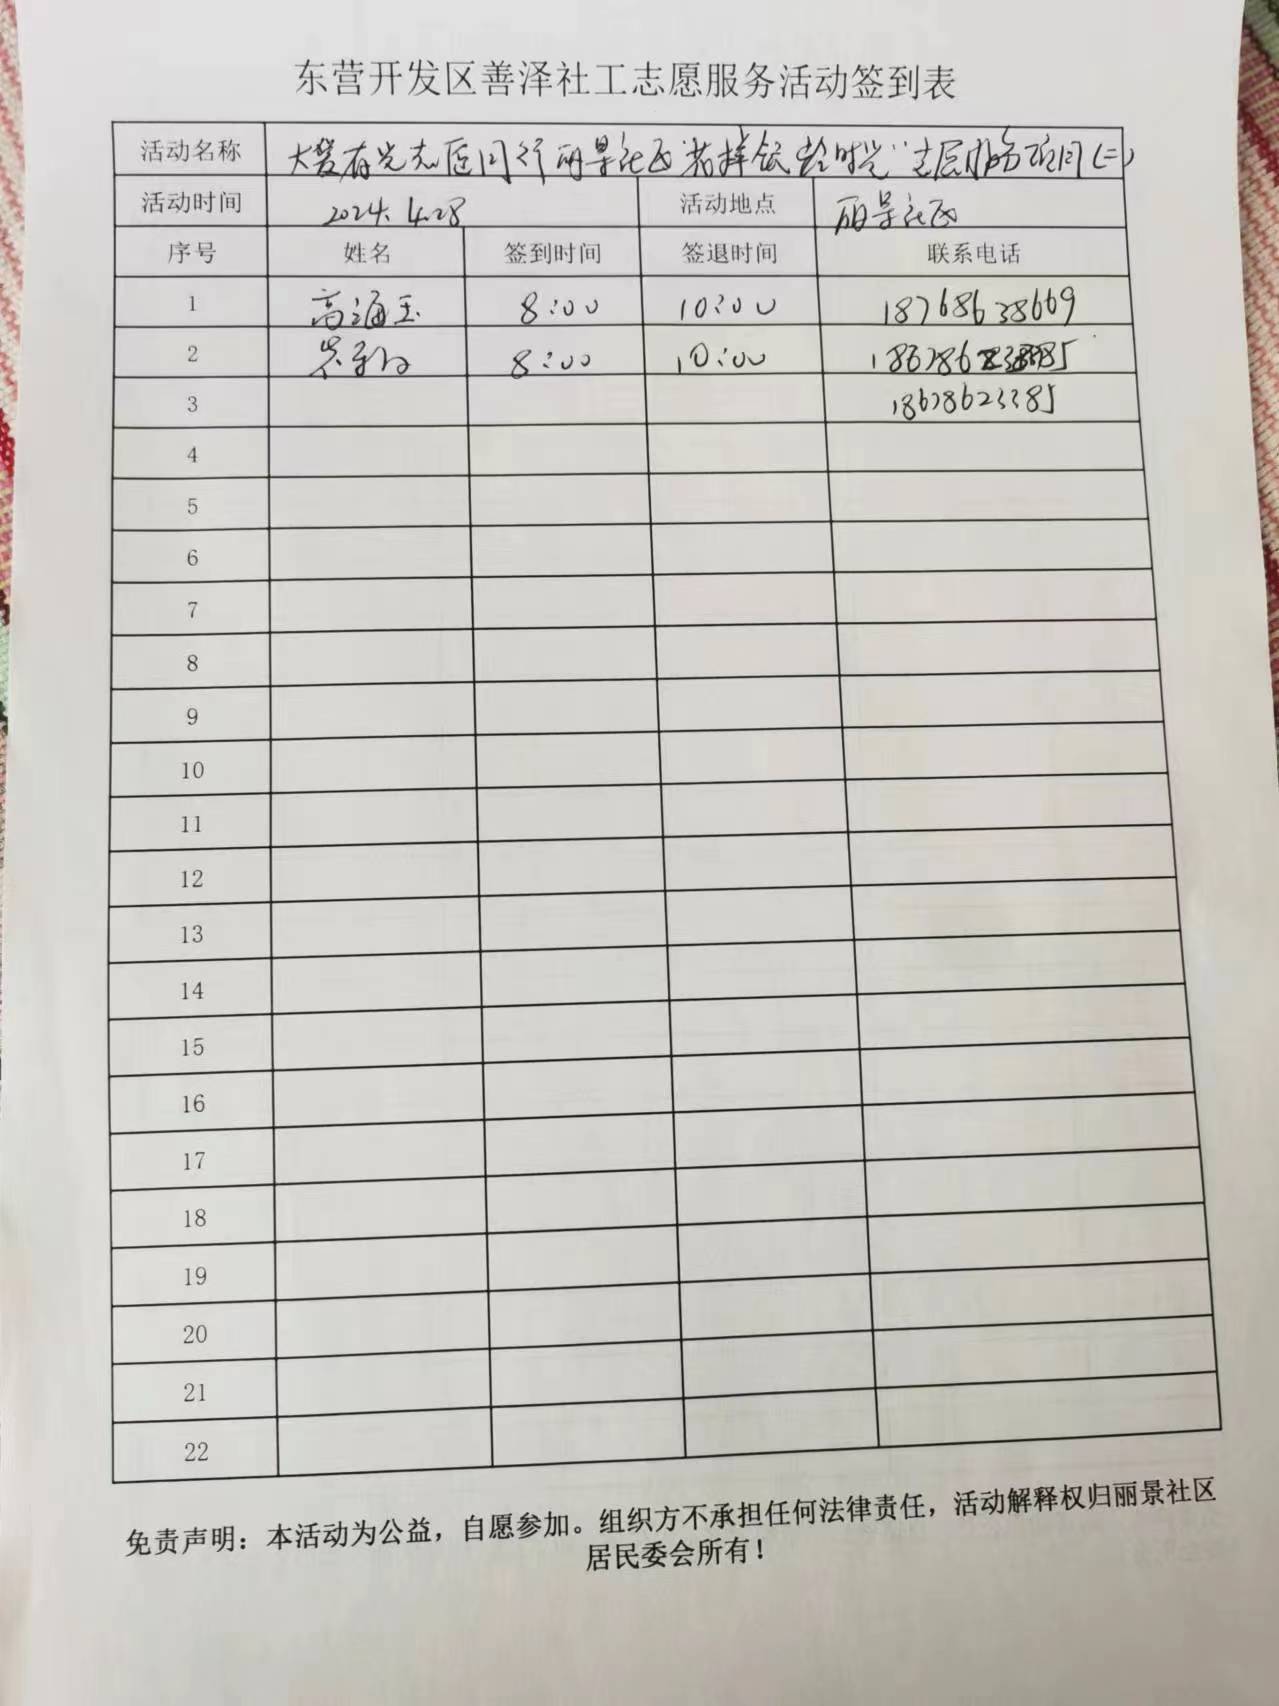 东营开发区善泽社工志愿服务活动签到表
活动名称 大爱有光志愿同行丽景社区"若择 时光"志愿服务项目(二)
活动时间 2024.4.28 活动地点 丽景社区
序号 姓名 签到时间 签退时间 联系电话
1 高海玉 8:00 10:00 18768638669
2 8:00 10:00
3 18678623385
4
5
6
7
8
9
10
11
12
13
14
15
16
17
18
19
20
21
22
免责声明：本活动为公益，自愿参加。组织方不承担任何法律责任，活动解释权归丽景社区
居民委会所有！